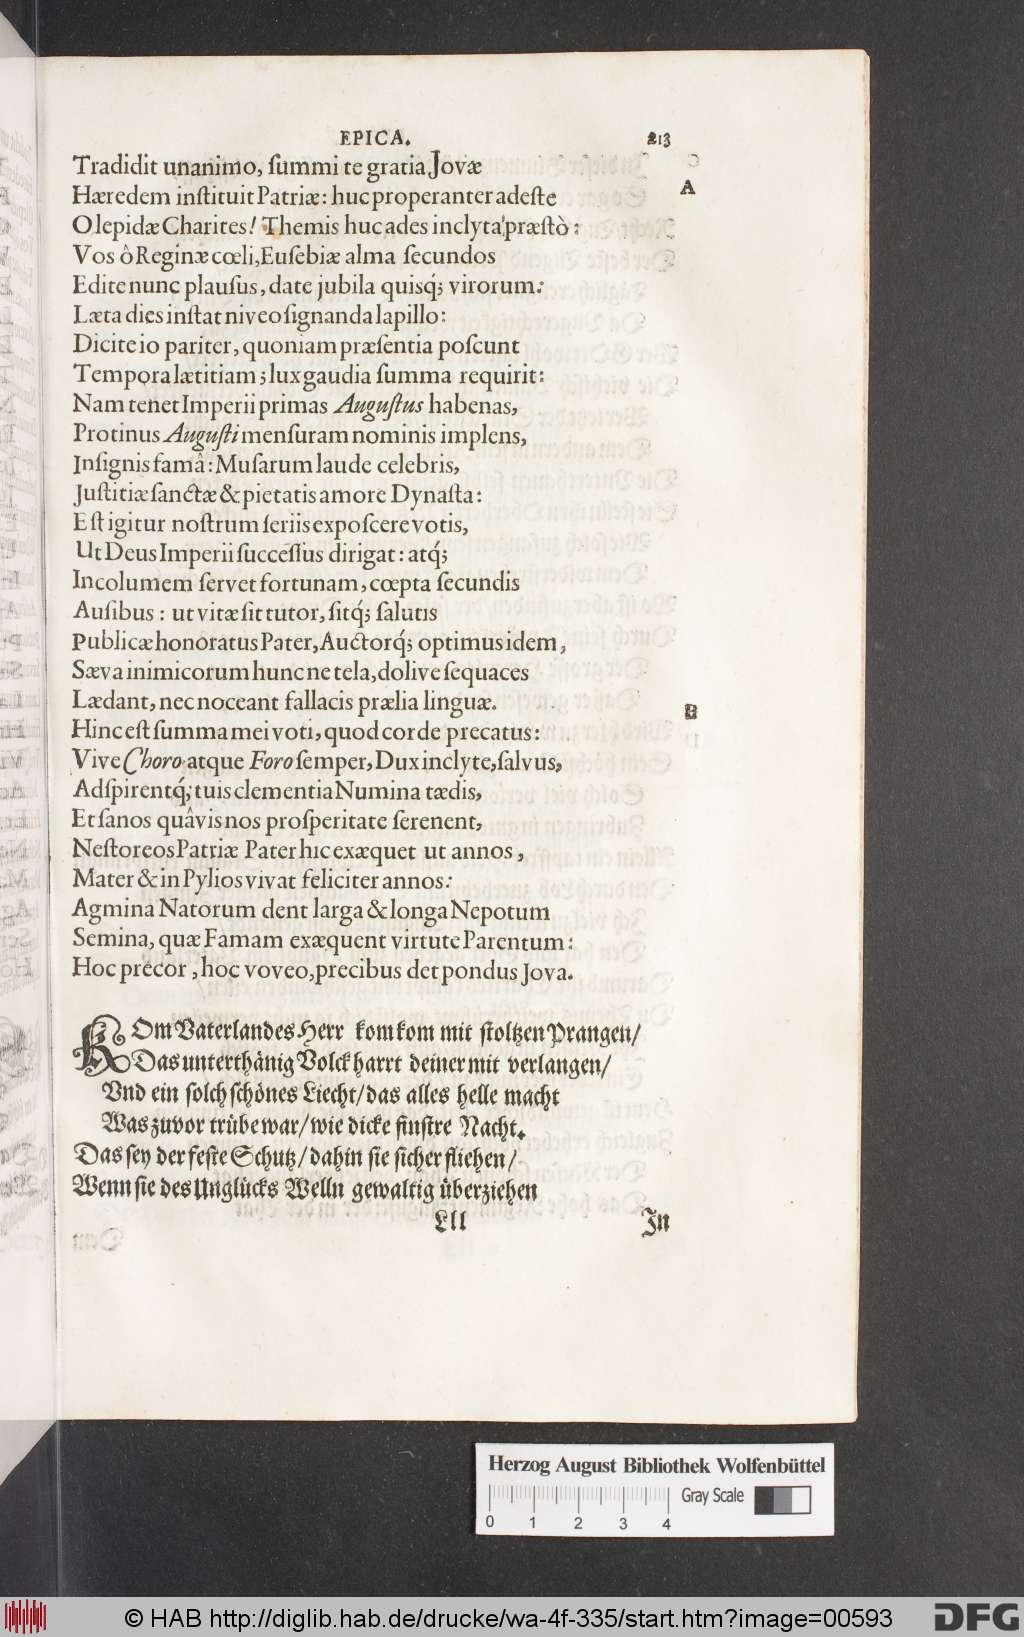 EPICA. 213
Tradidit unanimo, ſummi te gratia Jovæ
Hæredem inſtituit Patriæ: huc properanter adeſte A
O lepidæ Charites! Themis huc ades inclyta præſtò:
Vos ô Reginæ cœli, Euſebiæ alma ſecundos
Edite nunc plauſus, date jubila quisq́; virorum:
Læta dies inſtat niveo ſignanda lapillo:
Dicite io pariter, quoniam præſentia poſcunt
Tempora lætitiam; lux gaudia ſumma requirit:
Nam tenet Imperii primas Auguſtus habenas,
Protinus Auguſti menſuram nominis implens,
Inſignis famâ: Muſarum laude celebris,
Juſtitiæ ſanctæ & pietatis amore Dynaſta:
Eſt igitur noſtrum ſeriis expoſcere votis,
Ut Deus Imperii ſucceſſus dirigat: atq́;
Incolumem ſervet fortunam, cœpta ſecundis
Auſibus: ut vitæ ſit tutor, ſitq́; ſalutis
Publicæ honoratus Pater, Auctorq́; optimus idem,
Sæva inimicorum hunc ne tela, dolive ſequaces
Lædant, nec noceant fallacis prælia linguæ. B
Hinc eſt ſumma mei voti, quod corde precatus:
Vive Choro atque Foro ſemper, Dux inclyte, ſalvus,
Adſpirentq́; tuis clementia Numina tædis,
Et ſanos quâvis nos proſperitate ſerenent,
Neſtoreos Patriæ Pater hic exæquet ut annos,
Mater & in Pylios vivat feliciter annos:
Agmina Natorum dent larga & longa Nepotum
Semina, quæ Famam exæquent virtute Parentum:
Hoc precor, hoc voveo, precibus det pondus Jova.
KOm Vaterlandes Herr kom kom mit ſtoltzen Prangen/
Das unterthänig Volck harrt deiner mit verlangen/
Vnd ein ſolch ſchönes Liecht/das alles helle macht
Was zuvor trübe war/wie dicke finſtre Nacht.
Das ſey der feſte Schutz/dahin ſie ſicher fliehen/
Wenn ſie des Unglücks Welln gewaltig überziehen
Lll In
Herzog August Bibliothek Wolfenbüttel
Gray Scale
0 1 2 3 4
© HAB http://diglib.hab.de/drucke/wa-4f-335/start.htm?image=00593 DFG